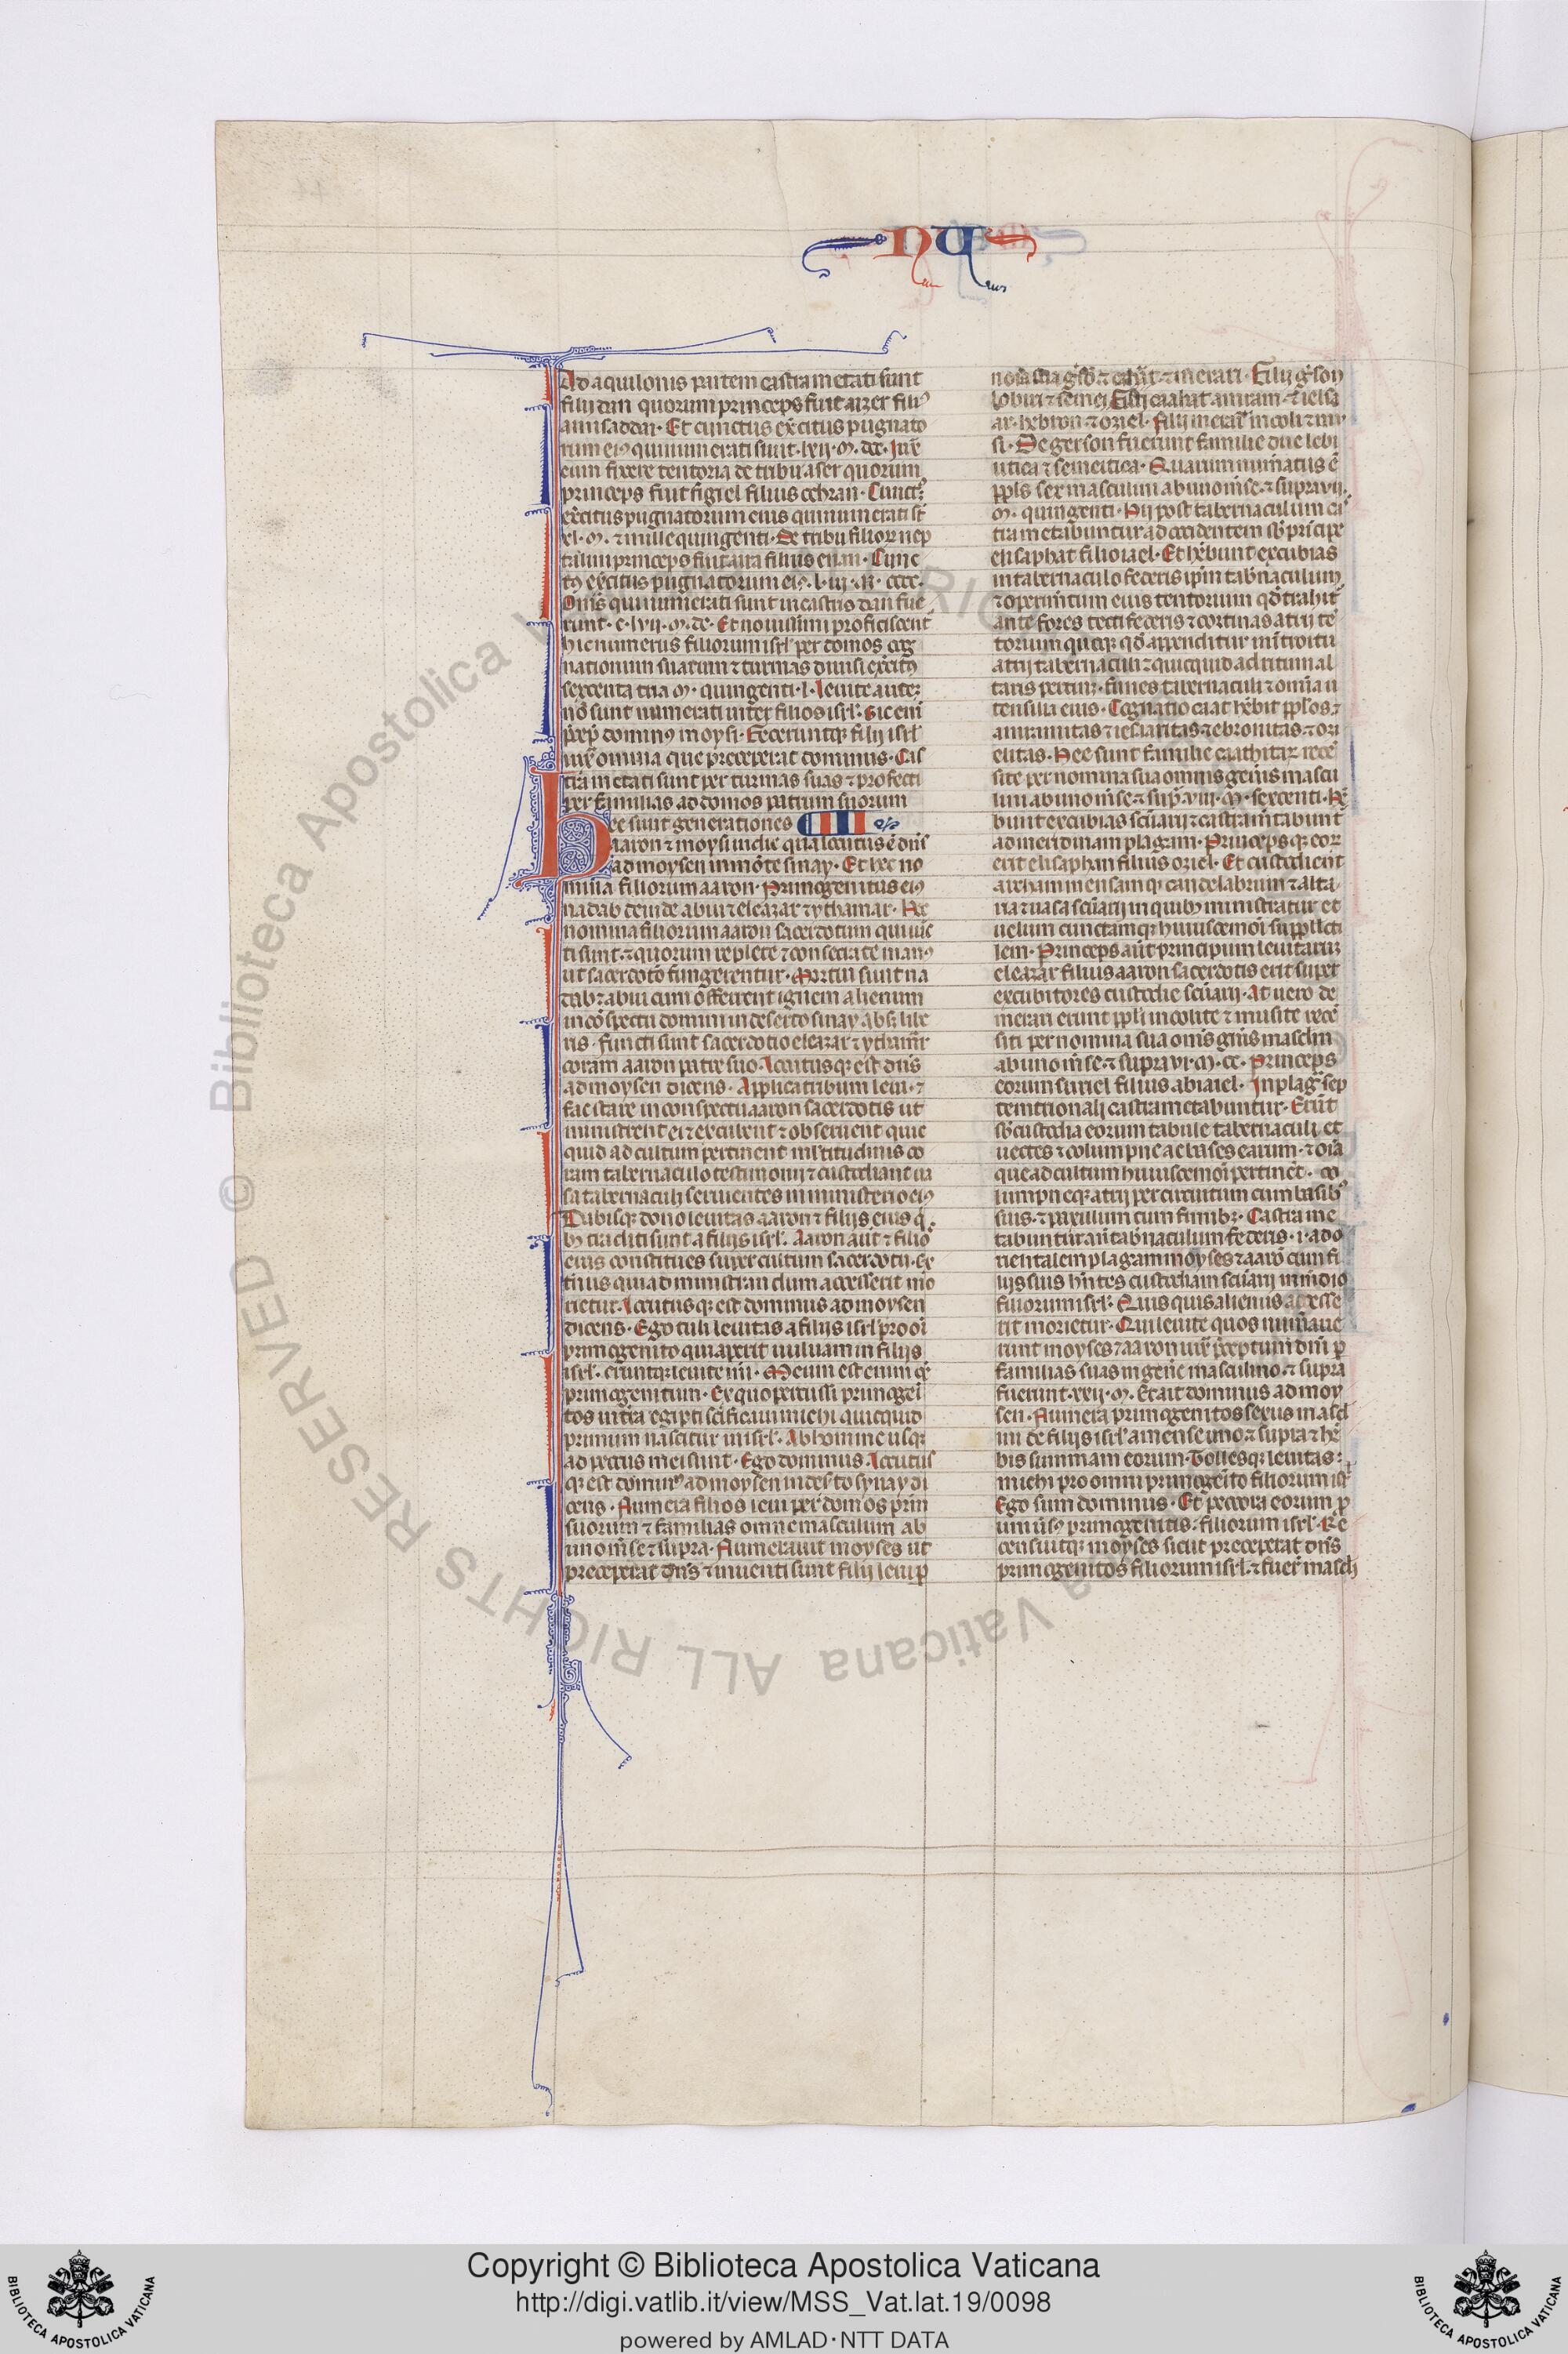 NU
Ad aquilonis partem castrametati sunt
filii dan quorum princeps fuit aizer fili9
amisaddai. Et cunctus exc̄itus pugnato
rum ei9 qui numerati sunt.lxii.M.dcc. Iux̄
eum fixere tentoria de tribu aser quorum
princeps fuit fegiel filius ochran. Cunct9
exc̄itus pugnatorum eius qui numerati st̄
xl.M. ⁊ mille quingenti. De tribu filiorum nep
talim princeps fuit aira filius enan. Cunc
t9 exc̄itus pugnatorum ei9.l.iii.M.cccc.
Om̄s qui numerati sunt in castris dan fue
runt.c.lvii.M.dc. Et novissimi proficiscent̄
hic numerus filiorum isrl̄ per domos cog
nationum suarum ⁊ turmas divisi exc̄it9
sexcenta tria M.quingenti.l. Levite autē
nō sunt numerati inter filios isrl̄. Sic enī
p̄cep̄ dominus moysi. Feceruntq; filii isrl̄
iux̄ omnia que preceperat dominus. Cas
trametati sunt per turmas suas ⁊ profecti
per familias ac domos patrum suorum
Hee sunt generationes III
aaron ⁊ moysi in die qua locutus ē dn̄s
ad moysen in mōte sinay. Et hec no
mina filiorum aaron. Primogenitus ei9
nadab deinde abiu ⁊ eleazar ⁊ ythamar. Hec
nomina filiorum aaron sacerdotum qui unc
ti sunt. ⁊ quorum replete ⁊ consecrate man9
ut sacerdotō fungerentur. Mortui sunt na
dab ⁊ abiu cum offerrent ignem alienum
in cōspectu domini in deserto sinay absq; libe
ris. Functi sunt sacerdotio eleazar ⁊ ythamr̄
coram aaron patre suo. Locutusq; est dn̄s
ad moysen dicens. Applica tribum levi. ⁊
fac stare in conspectu aaron sacerdotis ut
ministrent ei ⁊ excubent ⁊ observent quic
quid ad cultum pertinent ml̄titudinis co
ram tabernaculo testimonii ⁊ custodiant va
sa tabernaculi servientes in ministerio ei9
Dabisq; dono levitas aaron ⁊ filiis eius q̇
b9 traditi sunt a filiis isrl̄. Aaron aūt ⁊ filio
eius constitues super cultum sacerdotii. Ex
t̄nus qui ad ministrandum accesserit mo
rietur. Locutusq; est dominus ad moysen
dicens. Ego tuli levitas a filiis isrl̄ pro oī
primogenito qui aperit vulvam in filiis
isrl̄. eruntq; levite mī. Meum est enim oē
primogenitum. Ex quo percussi primogeī
tos in tr̄a egipti sc̄ificavi michi quicquid
primum nascitur in isrl̄. Ab homine usq;
ad pecus mei sunt. Ego dominus. Locutus
q; est domin9 ad moysen in des̄to synay di
cens. Numera filios levi per domos p̄rm
suorum ⁊ familias omne masculum ab
uno m̄se ⁊ supra. Numeravit moyses ut
preceperat dn̄s ⁊ inventi sunt filii levi p
noīa sua gs̄ō ⁊ caht̄ ⁊ merari. Filii gs̄on
lobni ⁊ semei. Filii caahat amram. ⁊ iesa
ar. hebron ⁊ oziel. Filii merari mooli ⁊ mu
si. De gerson fuerunt familie due lebi
nitica ⁊ semeitica. Quarum num̄atus ē
pp̄ls sex masculini ab uno m̄se. ⁊ supra vii.
M.quingenti. Hii post tabernaculum cas
trametabuntur ad occidentem sb̄ pricipe
elisaphat filio iael. Et hēbunt excubias
in tabernaculo federis ip̄m tab̄naculum
⁊ operim̄tum eius tentorium qd̄ trahit̄
ante fores tecti federis ⁊ cortinas atrii tē
torium quoq; qd̄ appenditur in ītroitu
atrii tabernaculi ⁊ quicquid ad ritum al
taris pertin̄; funes tabernaculi ⁊ omīa u
tensilia eius. Cognatio caat hēbit pp̄los.
amramitas ⁊ iesaaritas ⁊ ebronitas. ⁊ ozi
elitas. Hee sunt familie caathitar̄ rece
site per nomina sua omnis gen̄is mascu
lini ab uno m̄se ⁊ sup̄.viii.M.sexcenti. Hē
bunt excubias sc̄uarii ⁊ castram̄tabunt̄
ad meridianam plagam. Princepsq; eor̄
erit elisaphan filius oziel. Et custodient
archam mensamq; candelabrum ⁊ alta
ria ⁊ vasa sc̄uarii in quib9 ministratur et
velum cunctamq; huiuscemōi suppellecti
lem. Princeps aūt principum levitarum
eleazar filius aaron sacerdotis erit super
excubitores custodie sc̄uarii. At vero de
merari erunt pp̄li moolite ⁊ musite rece
siti per nomina sua om̄is gn̄is masclīn
ab uno m̄se. ⁊ supra vi.M.cc. Princeps
eorum suriel filius abiaiel. In plaga sep
temtrionali castrametabuntur. Erūt
sb̄ custodia eorum tabule tabernaculi et
vectes ⁊ columpne ac bases earum. ⁊ oīa
que ad cultum huiuscemōi pertinēt. co
lumpneq; atrii per circuitum cum basib9
suis. ⁊ paxillum cum funib;. Castrame
tabuntur an̄ tab̄naculum federis. i. ad o
rientalem plagam moyses ⁊ aarō cum fi
liis suis hn̄tes custodiam sc̄uarii in m̄dio
filiorum isrl̄. Quisquis alienus accesse
rit morietur. Om̄s levite quos num̄ave
runt moyses ⁊ aaron iux̄ p̄ceptum dn̄i p
familias suas in gen̄e masculino. ⁊ supra
fuerunt.xxii.M. Et ait dominus ad moy
sen. Numera primogenitos sexus mascl
ini de filiis isrl̄ a mense uno ⁊ supra ⁊ hē
bis summam eorum. Tollesq; levitas
michi pro omni primogēito filiorum isrl̄
Ego sum dominus. Et pecora eorum p
univ̄s9 primogenitis filiorum isrl̄. Re
censuitq; moyses sicut preceperat dn̄s
primogenitos filiorum isrl̄. ⁊ fuer̄ masclī
© Biblioteca Apostolica Vaticana ALL RIGHTS RESERVED
Copyright © Biblioteca Apostolica Vaticana
http://digi.vatlib.it/view/MSS_Vat.lat.19/0098
powered by AMLAD·NTT DATA
BIBLIOTECA APOSTOLICA VATICANA
BIBLIOTECA APOSTOLICA VATICANA